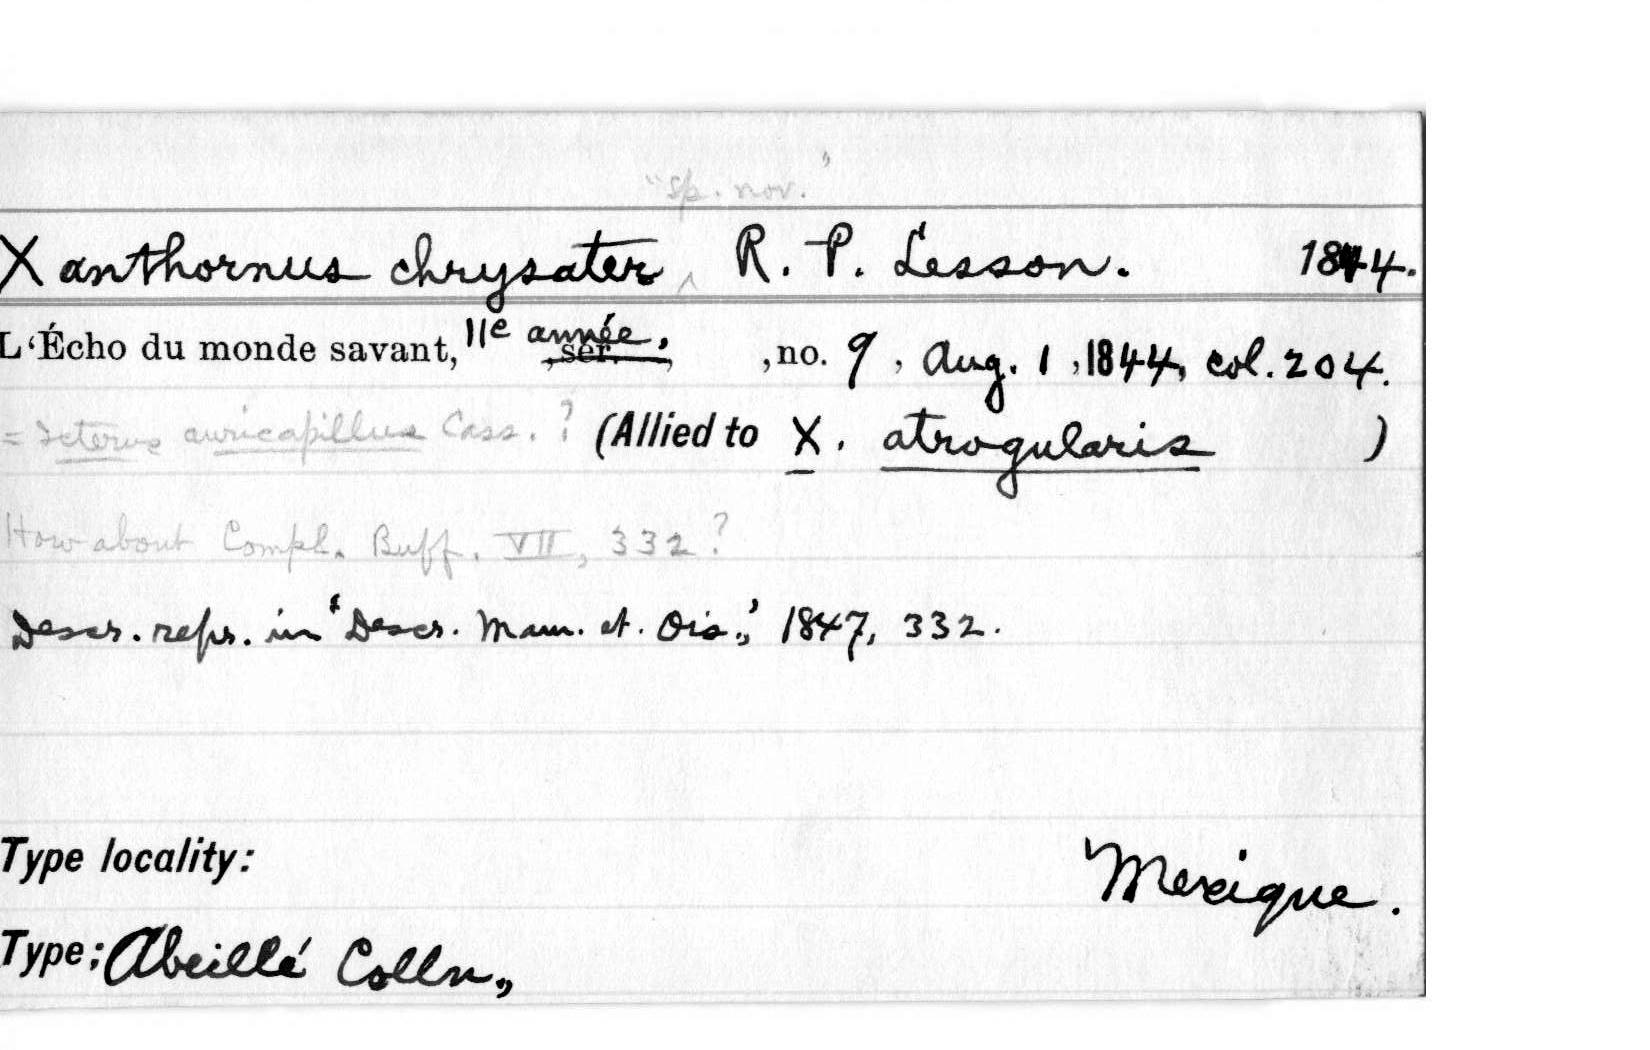 "sp. nov."
Xanthornus chrysater ‸ R. P. Lesson. 1844.
L'Écho du monde savant, 11e année, , ser. , , no. 9 , Aug. 1 , 1844, col. 204.
= Icterus auricapillus Cass. ? (Allied to X. atrogularis )
How about Compl. Buff. VII, 332?
Descr. repr. in 'Descr. Mam. et. Ois.,' 1847, 332.
Type locality: Mexique.
Type: Abeillé Colln.,